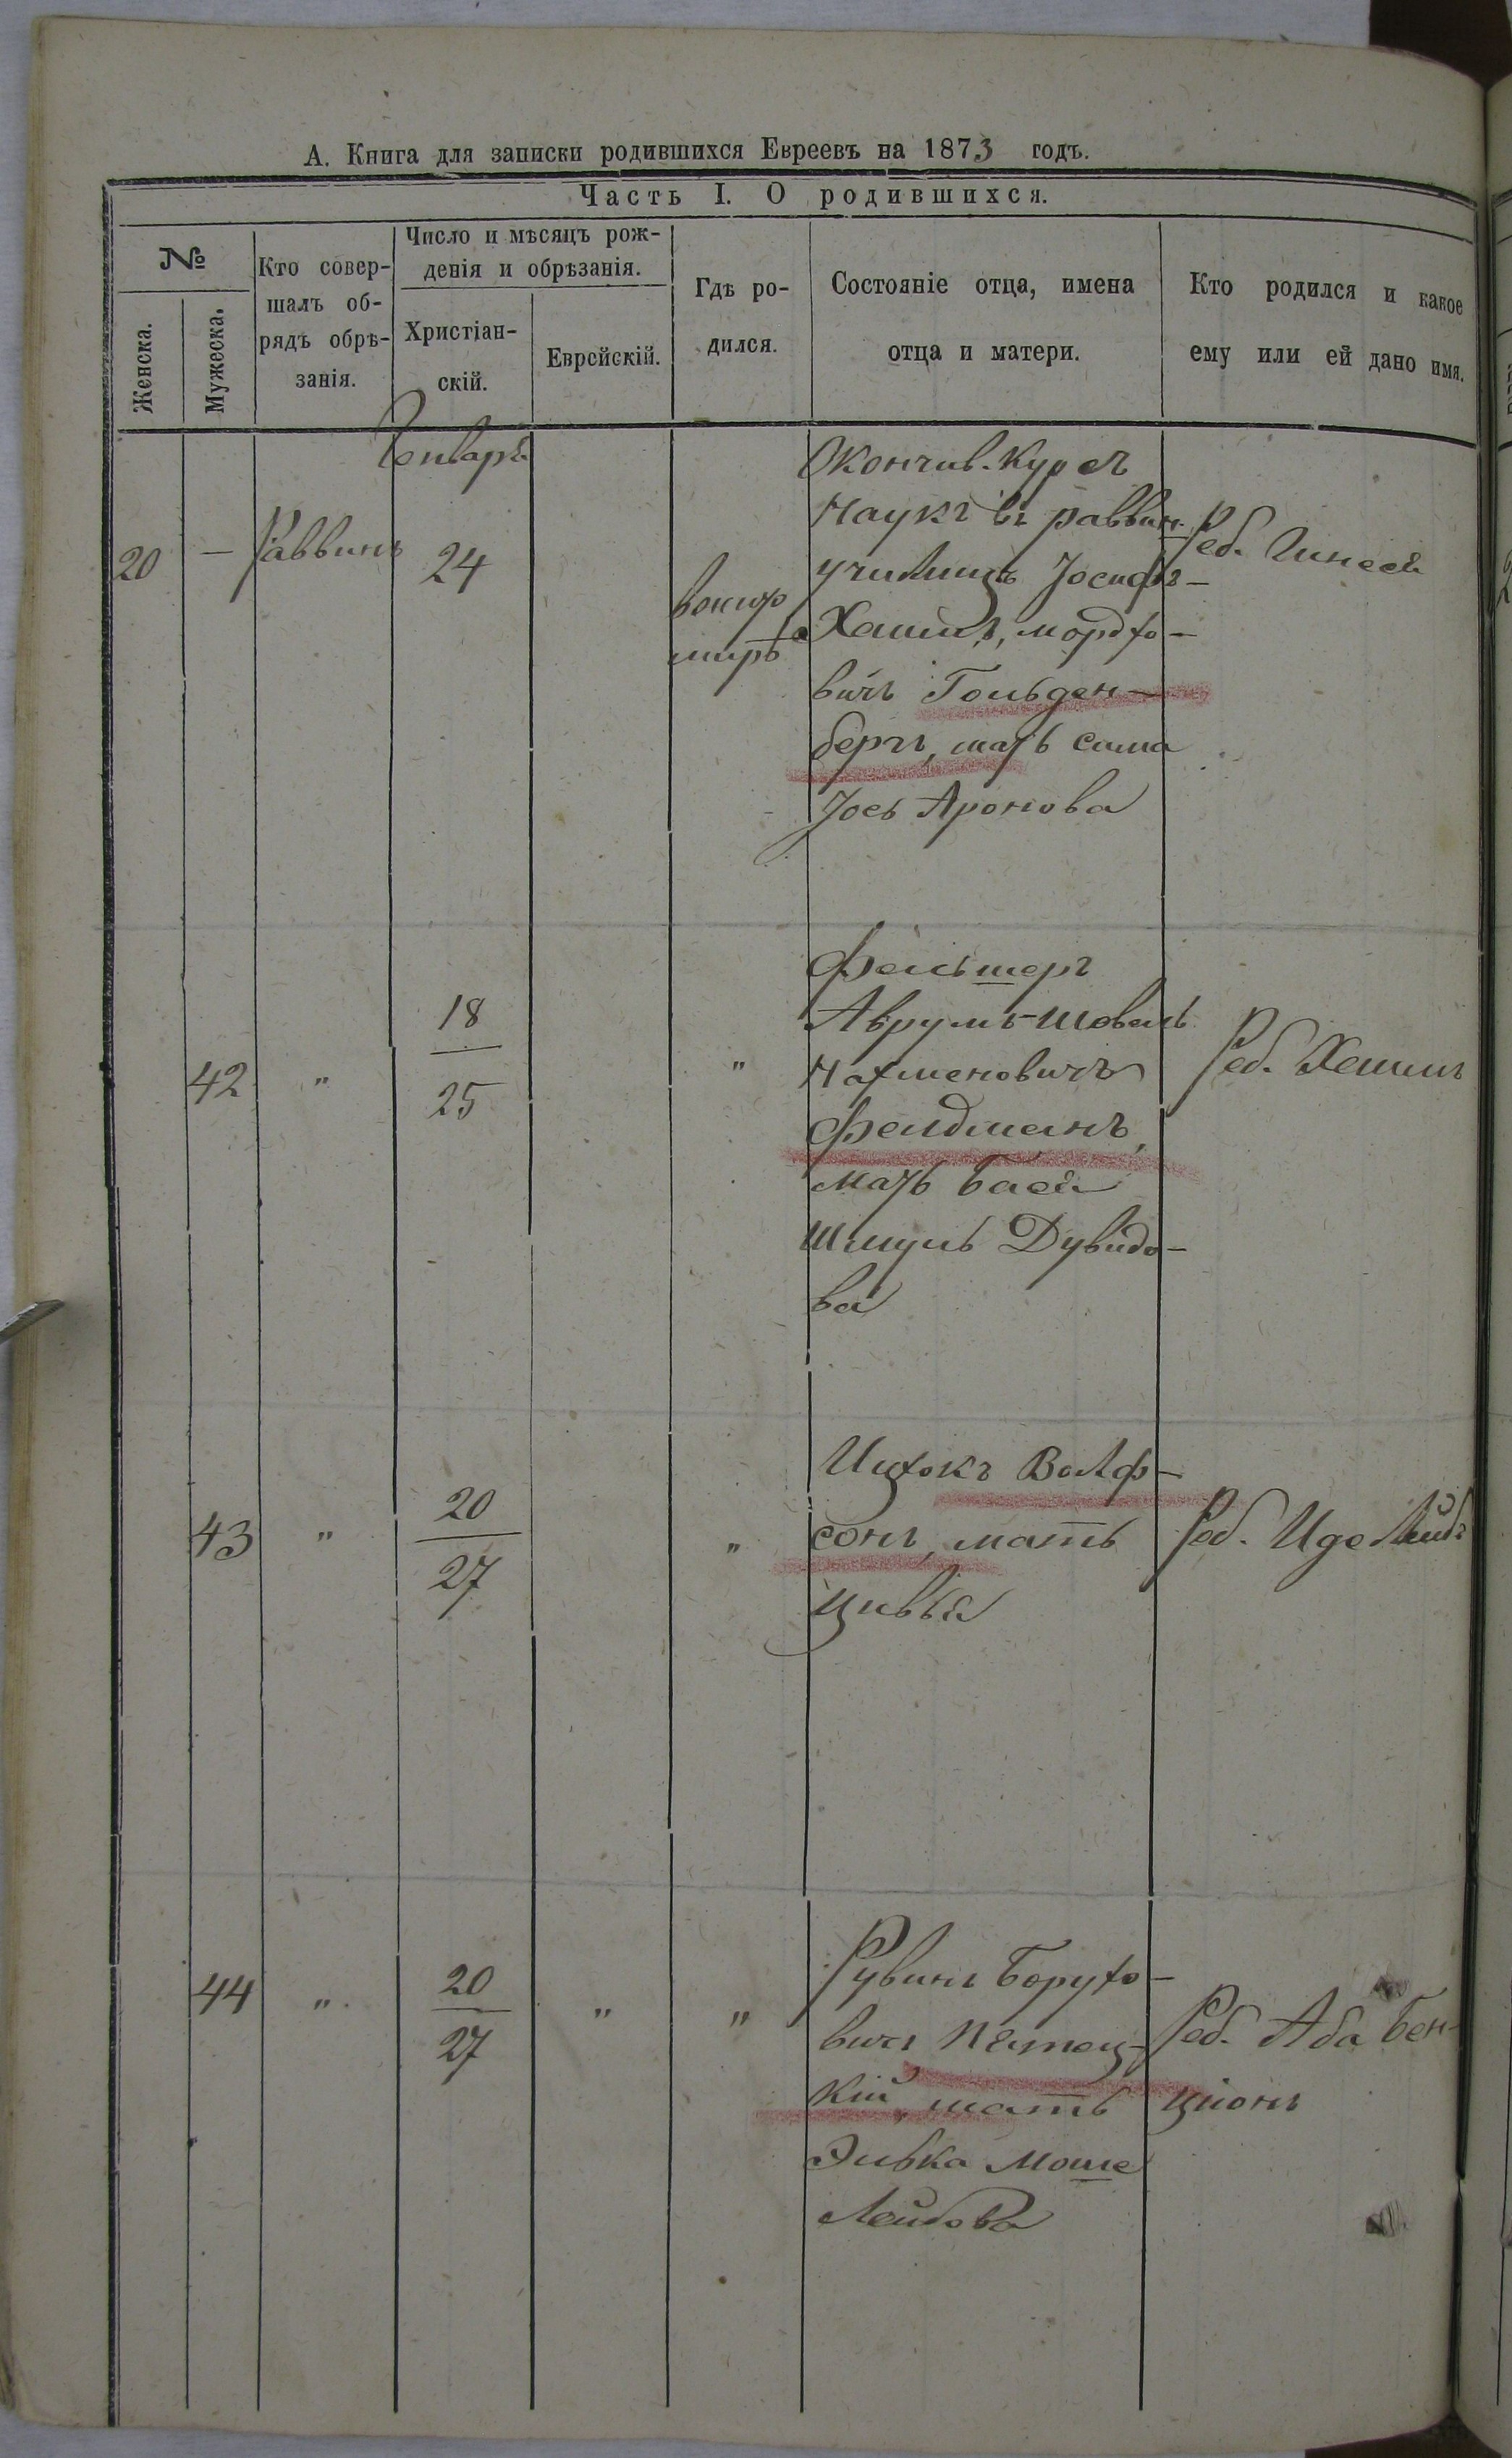 А. Книга для записки родившихся Евреевъ на 1873 годъ.
Часть I. О родившихся.
№
Женска.
Мужеска.
Кто совер-
шалъ об-
рядъ обрѣ-
занія.
Число и мѣсяцъ рож-
денія и обрѣзанія.
Христіан-
скій.
Еврейскій.
Гдѣ ро-
дился.
Состояніе отца, имена
отца и матери.
Кто родился и какое
ему или ей дано имя.
Генварь
20 — Раввинъ 24
Окончив. курсъ
наукъ въ раввин.
училищѣ Іосифъ-
Хаимъ, мордхо-
вичъ Гольден-
бергъ, мать сама
Іось Аронова
Реб.
42 " 18
25 "
Фельшеръ
Аврумъ-Шовель
Нахмановичъ
Фельдманъ,
мать Бася
Шмуль Дувидо-
ва
Реб. Хаимъ
43 " 20
27 "
Ицхокъ Волф-
сонъ, мать
Цивья
Реб. Иде Лейбъ
44 " 20
27 " "
Рувинъ Борухо-
вичъ
кій, мать
Эивка Моше
Лейбова
Реб. Аба Бен-
ціонъ